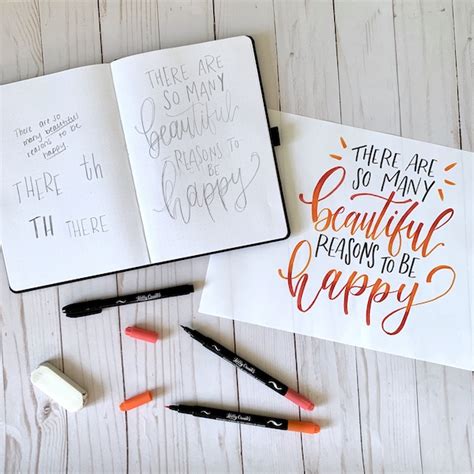 There are so
many beautiful
reasons to be
happy
THERE th
TH THERE
THERE ARE
SO MANY
beautiful
REASONS TO
happy
THERE ARE
SO MANY
beautiful
REASONS TO BE
happy
Kelly Creates
Kelly Creates
Kelly Creates